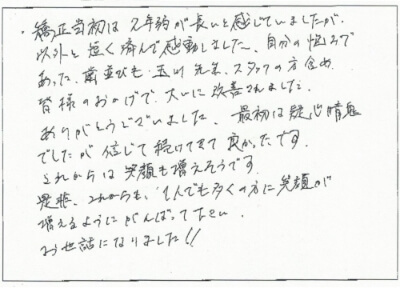 ・矯正当初は2年約が長いと感じていましたが、
以外と短く済んで感動しました。自分の悩みで
あった、歯並びも、玉川先生、スタッフの方含め、
皆様のおかげで、大いに改善されました。
ありがとうございました。最初は疑心暗鬼
でしたが信じて続けてきて良かったです。
これからは笑顔も増えそうです
是非、これからも、1人でも多くの方に笑顔が
増えるようにがんばって下さい
お世話になりました!!